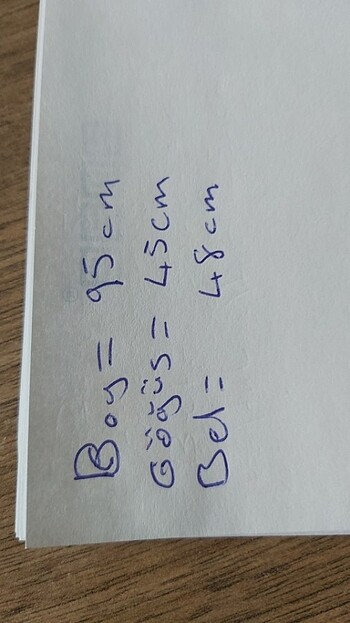 Boy = 95 cm
Göğüs = 45 cm
Bel = 48 cm